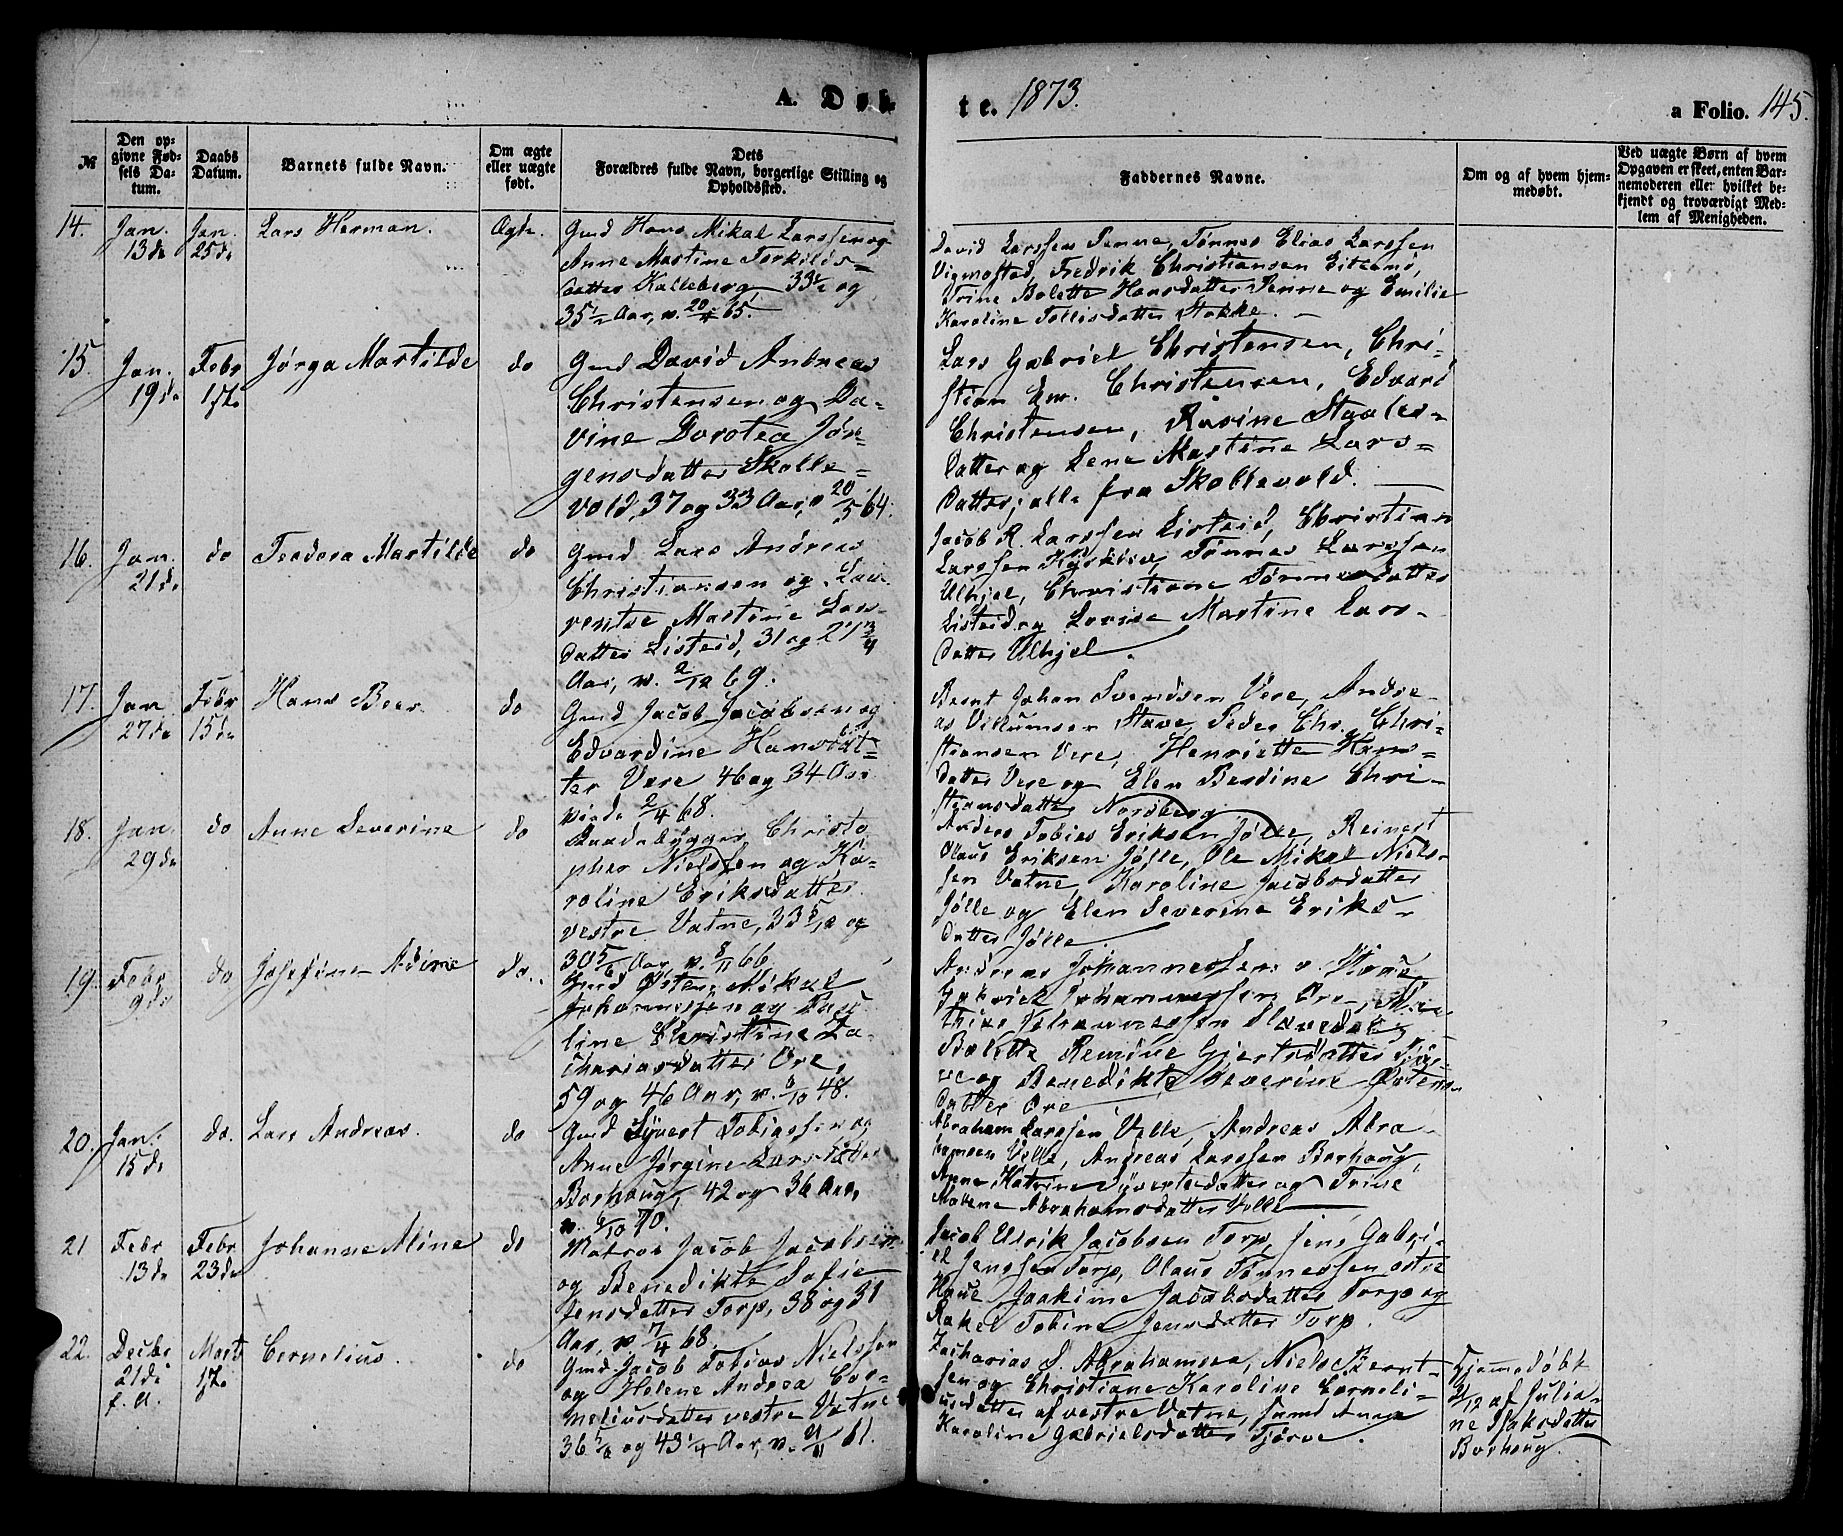 A. Døb-
te. 1873.
a Folio. 145.
№
Den op-
givne Fød-
sels Da-
tum.
Daabs
Datum.
Barnets fulde Navn.
Om ægte
eller uægte
født.
Dets
Forældres fulde Navn, borgerlige Stilling og
Opholdssted.
Faddernes Navne.
Om og af hvem hjem-
medøbt.
Ved uægte Børn af hvem
Opgaven er skeet, enten Bar-
nemoderen eller hvilket be-
kjendt og troværdigt Med-
lem af Menigheden.
14.
Jan.
13de
Jan.
25de
Lars Herman.
Ægte.
Gmd Hans Mikal Larssen og
Anne Martine Torkilds-
datter Kalleberg, 33½ og
35½ Aar, v. 20/4 65.
David Larssen Penne, Tønnes Elias Larssen
Vigmostad, Fredrik Christiansen
Trine Bolette Hansdatter Penne og Emilie
Karoline Tollisdatter Stokke.
15.
Jan.
19de
Febr
1ste
Jørga Martilde
do
Gmd David Andreas
Christensen og Da-
vine Dorotea Jør-
gensdatter Skolle-
vold, 37 og 33 Aar, 20/5 64.
Lars Gabriel Christensen, Chri-
stian Em. Christensen, Edvard
Christensen, Rasine Staales-
datter og Lene Martine Lars-
datter, alle fra Skollevold.
16.
Jan.
21de
do
Teodora Martilde
do
Gmd Lars Andreas
Christiansen og Lau-
rentse Martine Lars-
datter Listeid, 31 og 21¾
Aar, v. 2/12 69.
Jacob R. Larssen Listeid, Christian
Larssen Tønnes Larssen
Ulhjel, Christiane Tønnesdatter
Listeid og Lovise Martine Lars-
datter Ulhjel.
17.
Jan
27de
Febr
15de
Hans Beer
do
Gmd Jacob Jacobsen og
Edvardine Hansdat-
ter Vere 46 og 34 Aar
viede 2/4 68.
Bernt Johan Svendsen Vere, Andre-
as Villumsen Stave, Peder Chr. Chri-
stiansen Vere, Henriette Hans-
datter Vere og Elen Berdine Chri-
stiansdatter Nordberg
18.
Jan.
29de
do
Anne Severine
do
Baadebygger Christo-
pher Nielssen og Ka-
roline Eriksdatter
vestre Vatne, 33 5/12 og
30 5/6 Aar, v. 8/11 66.
Anders Tobias Eriksen Jølle, Reinert
Olaus Eriksen Jølle, Ole Mikal Niels-
sen Vatne, Karoline Jacobsdatter
Jølle og Elen Severine Eriks-
datter Jølle.
19.
Febr
9de
do
Josefine Adine
do.
Gmd Østen Mikal
Johannssen og Pau-
line Christine Za-
chariasdatter Ore,
59 og 46 Aar, v. 48.
Andreas Johannessen
Gabriel Johannessen Ore,
thias Johannessen
Bolette Remine Gjertsdatter
og Benedikte Severine Østens-
datter Ore
20.
Jan.
15de
do.
Lars Andreas.
do
Gmd Syvert Tobiassen og
Anne Jørgine Larsdatter
Borhaug, 42 og 36 Aar,
v. 6/10 70.
Abraham Larssen Velle, Andreas Abra-
hamsen Velle, Andreas Larssen Borhaug,
Anne Katrine Syvertsdatter og Trine
Malene Abrahamsdatter Velle
21
Febr
13de
Febr
23de
Johanne Aline
do
Matros Jacob Jacobsen
og Benedikte Sofie
Jensdatter Torp, 38 og 31
Aar, v. 7/4 68.
Jacob Ulrik Jacobsen Torp, Jens Gabri-
el Jenssen Torp, Olaus Tønnessen østre
Haue, Joakime Jacobsdatter Torp og
Rakel Tobine Jensdatter Torp.
22.
Decbr
21de
f. A.
Marts
1ste
Cornelius.
do
Gmd Jacob Tobias Nielssen
og Helene Andrea Cor-
neliusdatter vestre Vatne
36 5/6 og 43¼ Aar, v. 21/11 61.
Zacharias S. Abrahamsen, Niels Bernt-
sen og Christiane Karoline Corneli-
usdatter af vestre Vatne, samt Anne
Karoline Gabrielsdatter Tjørve.
Hjemmedøbt
3/12 af Julia-
ne Isaksdatter
Borhaug.